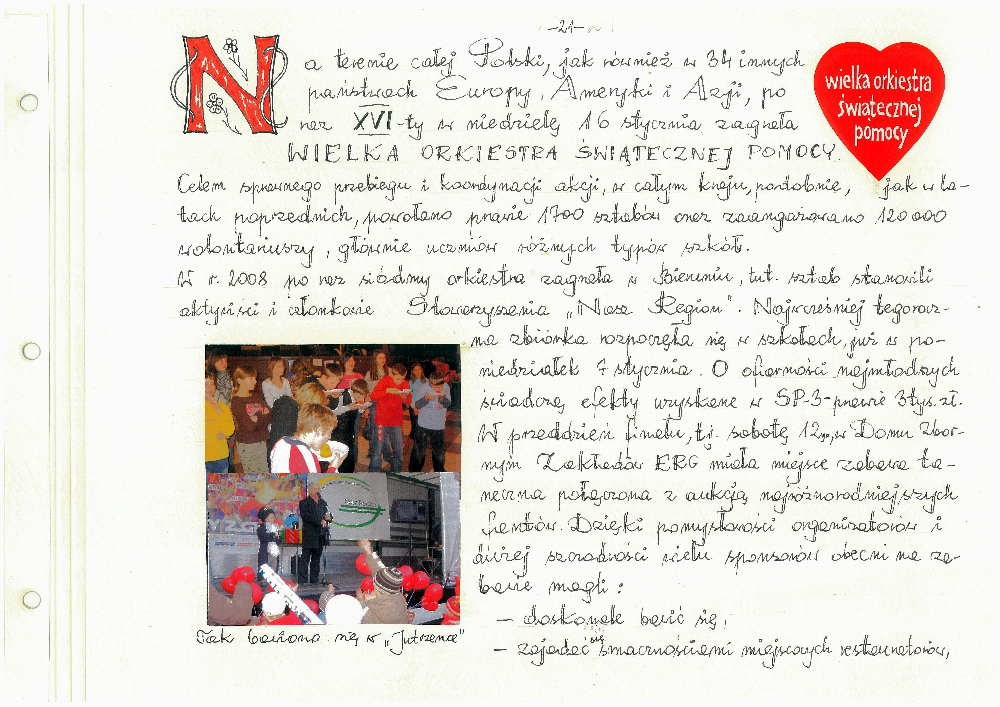 -21-
Na terenie całej Polski, jak również w 34 innych
państwach Europy, Ameryki i Azji, po
raz XVI-ty w niedzielę 16 stycznia zagrała
WIELKA ORKIESTRA ŚWIĄTECZNEJ POMOCY.
wielka orkiestra
świątecznej
pomocy
Celem sprawnego przebiegu i koordynacji akcji, w całym kraju, podobnie, jak w la-
tach poprzednich, powołano prawie 1700 sztabów oraz zaangażowano 120 000
wolontariuszy, głównie uczniów różnych typów szkół.
W r. 2008 po raz siódmy orkiestra zagrała w Bieruniu, tut. sztab stanowili
aktywiści i członkowie Stowarzyszenia „Nasz Region". Najwcześniej tegorocz-
na zbiórka rozpoczęła się w szkołach, już w po-
niedziałek 7 stycznia. O ofiarności najmłodszych
świadczą efekty uzyskane w SP-3-prawie 3tys.zł.
W przeddzień finału, tj. sobotę 12, w Domu Zbor-
nym Zakładów ERG miała miejsce zabawa ta-
neczna połączona z aukcją najróżnorodniejszych
fantów. Dzięki pomysłowości organizatorów i
dużej szczodrości wielu sponsorów obecni na za-
bawie mogli :
- doskonale bawić się,
- zajadać się smacznościami miejscowych restauratorów,
Tak bawiono się w „Jutrzence"